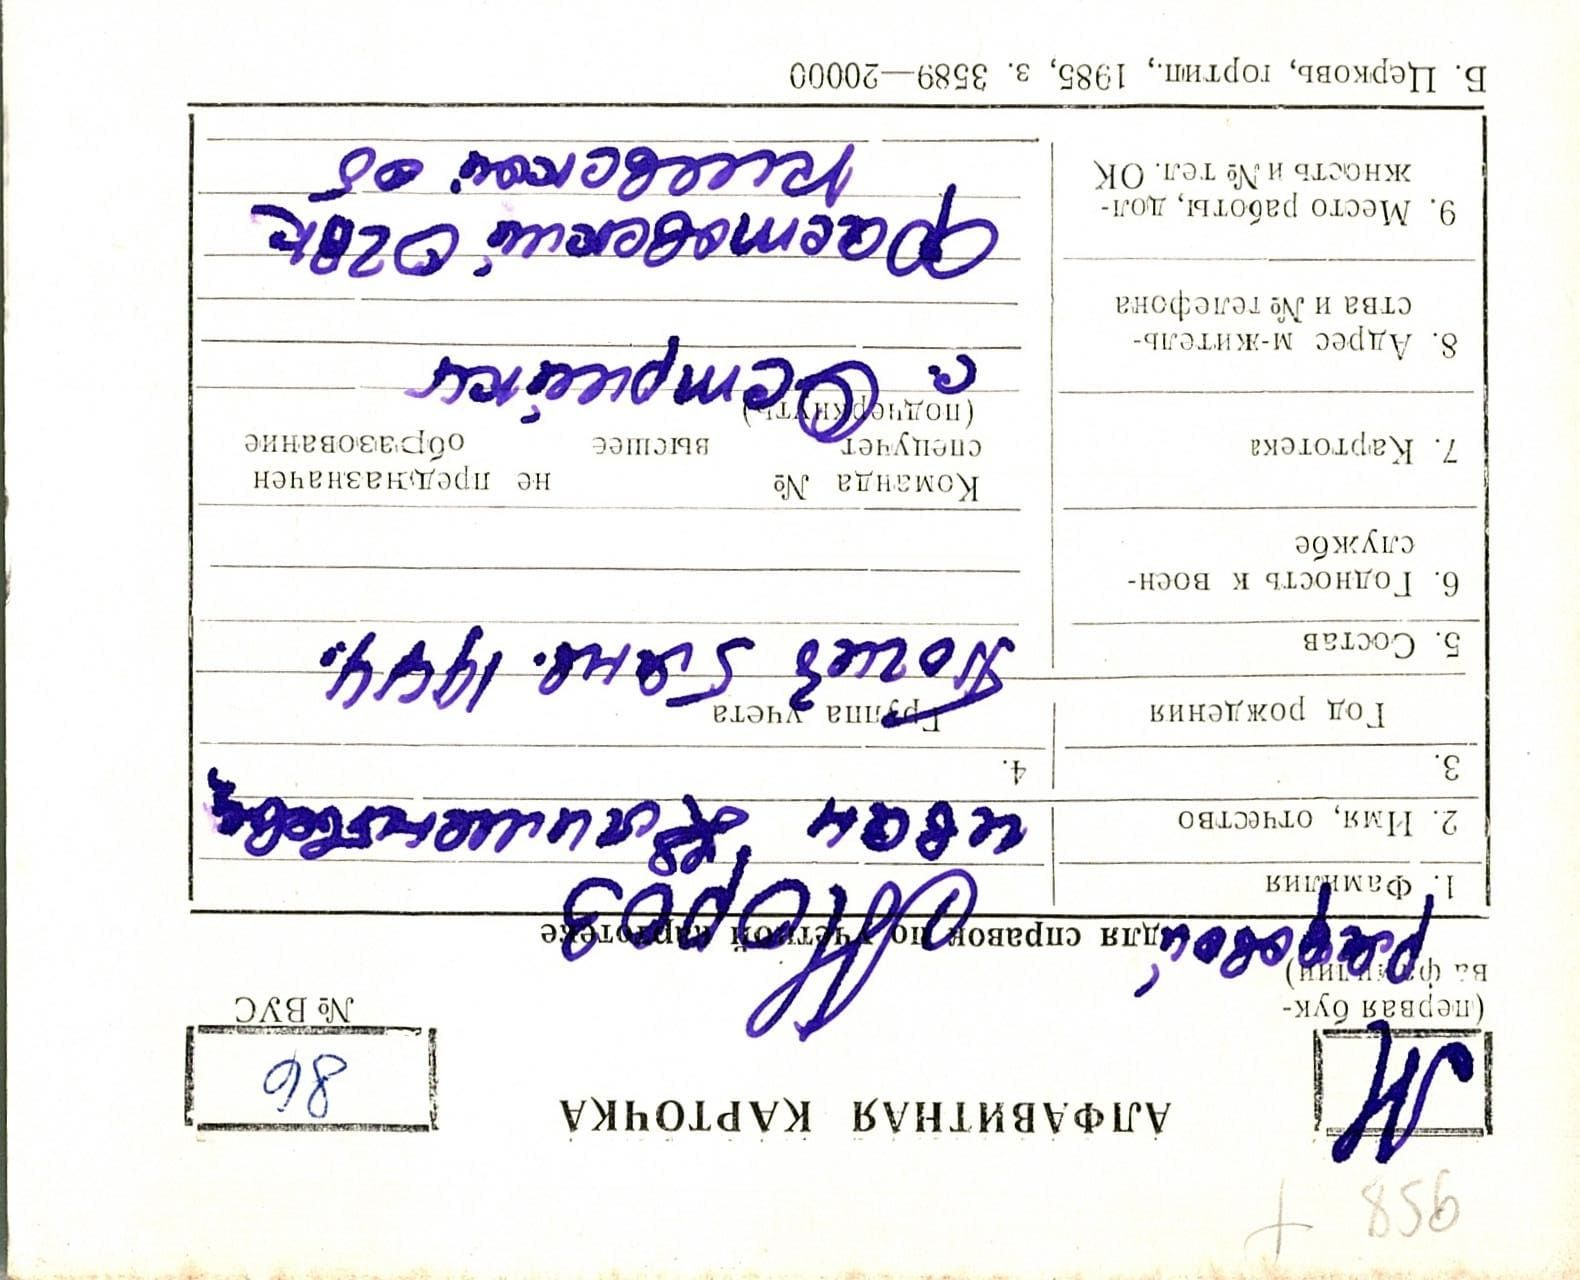 + 856
М
АЛФАВИТНАЯ КАРТОЧКА
86
(первая бук-
ва фамилии)
№ ВУС
рядовой
для справок по учетной картотеке
1. Фамилия
Мороз
2. Имя, отчество
иван
3.
4.
Год рождения
Группа учета
5. Состав
Погиб 5 янв. 1944.
6. Годность к воен-
службе
7. Картотека
Команда № не предназначен
спецучет высшее образование
(подчеркнуть)
с. Острийки
8. Адрес м-житель-
ства и № телефона
9. Место работы, дол-
жность и № тел. ОК
Фастовский ОГВК
Киевской об
Б. Церковь, гортип., 1985, з. 3589—20000